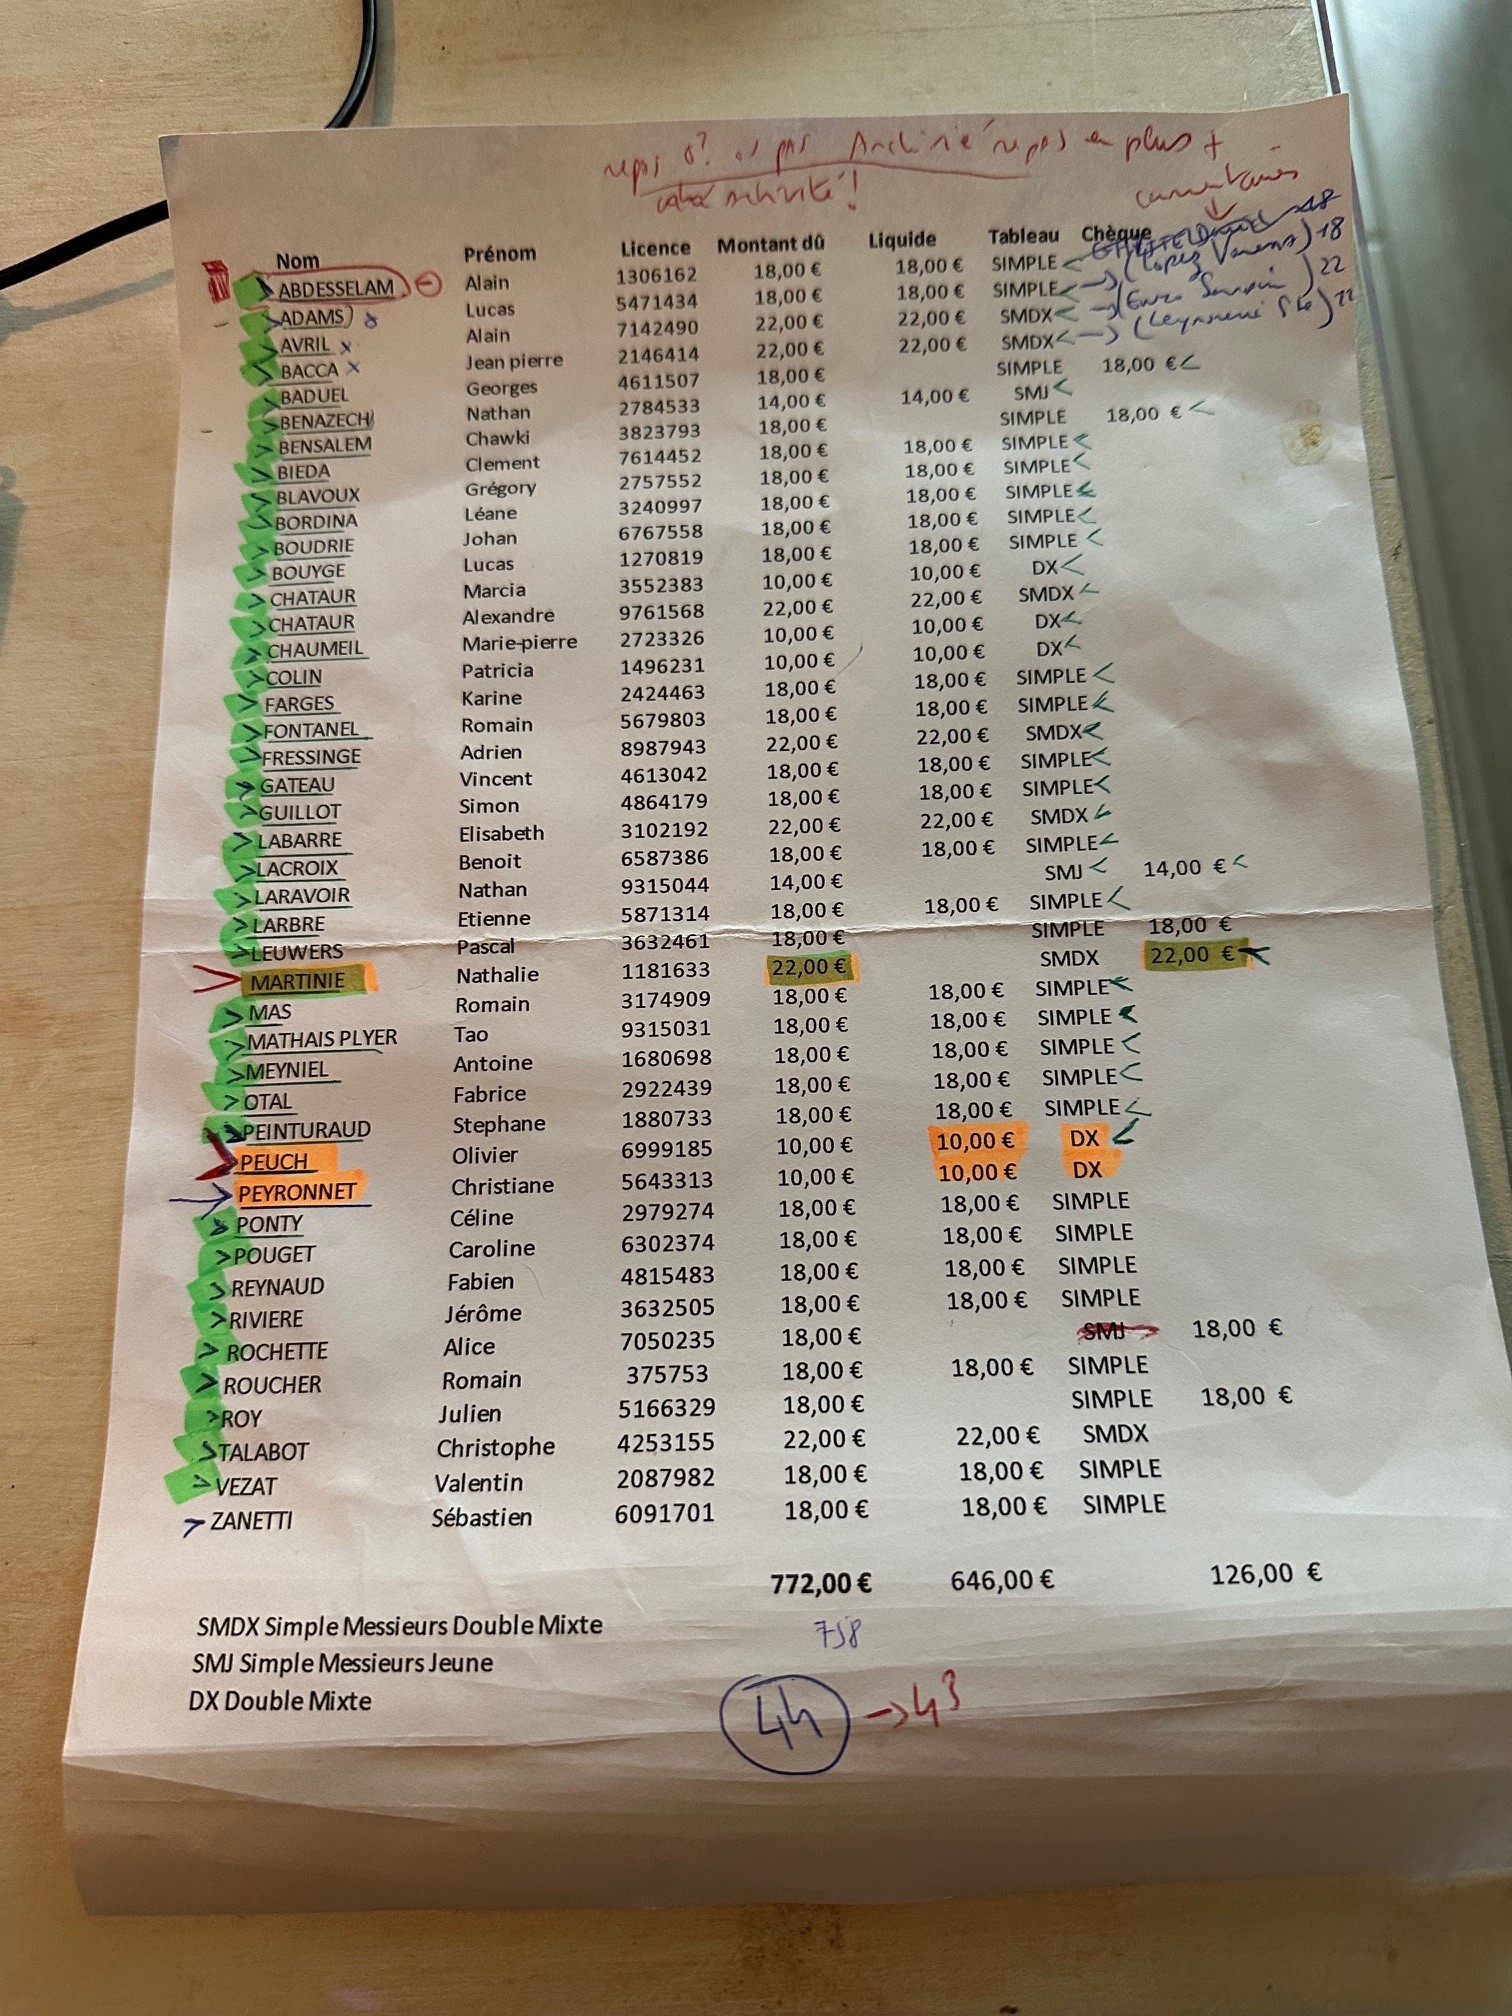 repas en plus +
commentaires
Nom Prénom Licence Montant dû Liquide Tableau Chèque
ABDESSELAM Alain 1306162 18,00 € 18,00 € SIMPLE 18
ADAMS Lucas 5471434 18,00 € 18,00 € SIMPLE (Lopez Vanessa) 18
AVRIL Alain 7142490 22,00 € 22,00 € SMDX 22
BACCA Jean pierre 2146414 22,00 € 22,00 € SMDX 22
BADUEL Georges 4611507 18,00 € SIMPLE 18,00 €
BENAZECH Nathan 2784533 14,00 € 14,00 € SMJ
BENSALEM Chawki 3823793 18,00 € SIMPLE 18,00 €
BIEDA Clement 7614452 18,00 € 18,00 € SIMPLE
BLAVOUX Grégory 2757552 18,00 € 18,00 € SIMPLE
BORDINA Léane 3240997 18,00 € 18,00 € SIMPLE
BOUDRIE Johan 6767558 18,00 € 18,00 € SIMPLE
BOUYGE Lucas 1270819 18,00 € 18,00 € SIMPLE
CHATAUR Marcia 3552383 10,00 € 10,00 € DX
CHATAUR Alexandre 9761568 22,00 € 22,00 € SMDX
CHAUMEIL Marie-pierre 2723326 10,00 € 10,00 € DX
COLIN Patricia 1496231 10,00 € 10,00 € DX
FARGES Karine 2424463 18,00 € 18,00 € SIMPLE
FONTANEL Romain 5679803 18,00 € 18,00 € SIMPLE
FRESSINGE Adrien 8987943 22,00 € 22,00 € SMDX
GATEAU Vincent 4613042 18,00 € 18,00 € SIMPLE
GUILLOT Simon 4864179 18,00 € 18,00 € SIMPLE
LABARRE Elisabeth 3102192 22,00 € 22,00 € SMDX
LACROIX Benoit 6587386 18,00 € 18,00 € SIMPLE
LARAVOIR Nathan 9315044 14,00 € SMJ 14,00 €
LARBRE Etienne 5871314 18,00 € 18,00 € SIMPLE
LEUWERS Pascal 3632461 18,00 € SIMPLE 18,00 €
MARTINIE Nathalie 1181633 22,00 € SMDX 22,00 €
MAS Romain 3174909 18,00 € 18,00 € SIMPLE
MATHAIS PLYER Tao 9315031 18,00 € 18,00 € SIMPLE
MEYNIEL Antoine 1680698 18,00 € 18,00 € SIMPLE
OTAL Fabrice 2922439 18,00 € 18,00 € SIMPLE
PEINTURAUD Stephane 1880733 18,00 € 18,00 € SIMPLE
PEUCH Olivier 6999185 10,00 € 10,00 € DX
PEYRONNET Christiane 5643313 10,00 € 10,00 € DX
PONTY Céline 2979274 18,00 € 18,00 € SIMPLE
POUGET Caroline 6302374 18,00 € 18,00 € SIMPLE
REYNAUD Fabien 4815483 18,00 € 18,00 € SIMPLE
RIVIERE Jérôme 3632505 18,00 € 18,00 € SIMPLE
ROCHETTE Alice 7050235 18,00 € SMJ 18,00 €
ROUCHER Romain 375753 18,00 € 18,00 € SIMPLE
ROY Julien 5166329 18,00 € SIMPLE 18,00 €
TALABOT Christophe 4253155 22,00 € 22,00 € SMDX
VEZAT Valentin 2087982 18,00 € 18,00 € SIMPLE
ZANETTI Sébastien 6091701 18,00 € 18,00 € SIMPLE
772,00 € 646,00 € 126,00 €
SMDX Simple Messieurs Double Mixte
758
SMJ Simple Messieurs Jeune
DX Double Mixte
44 → 43